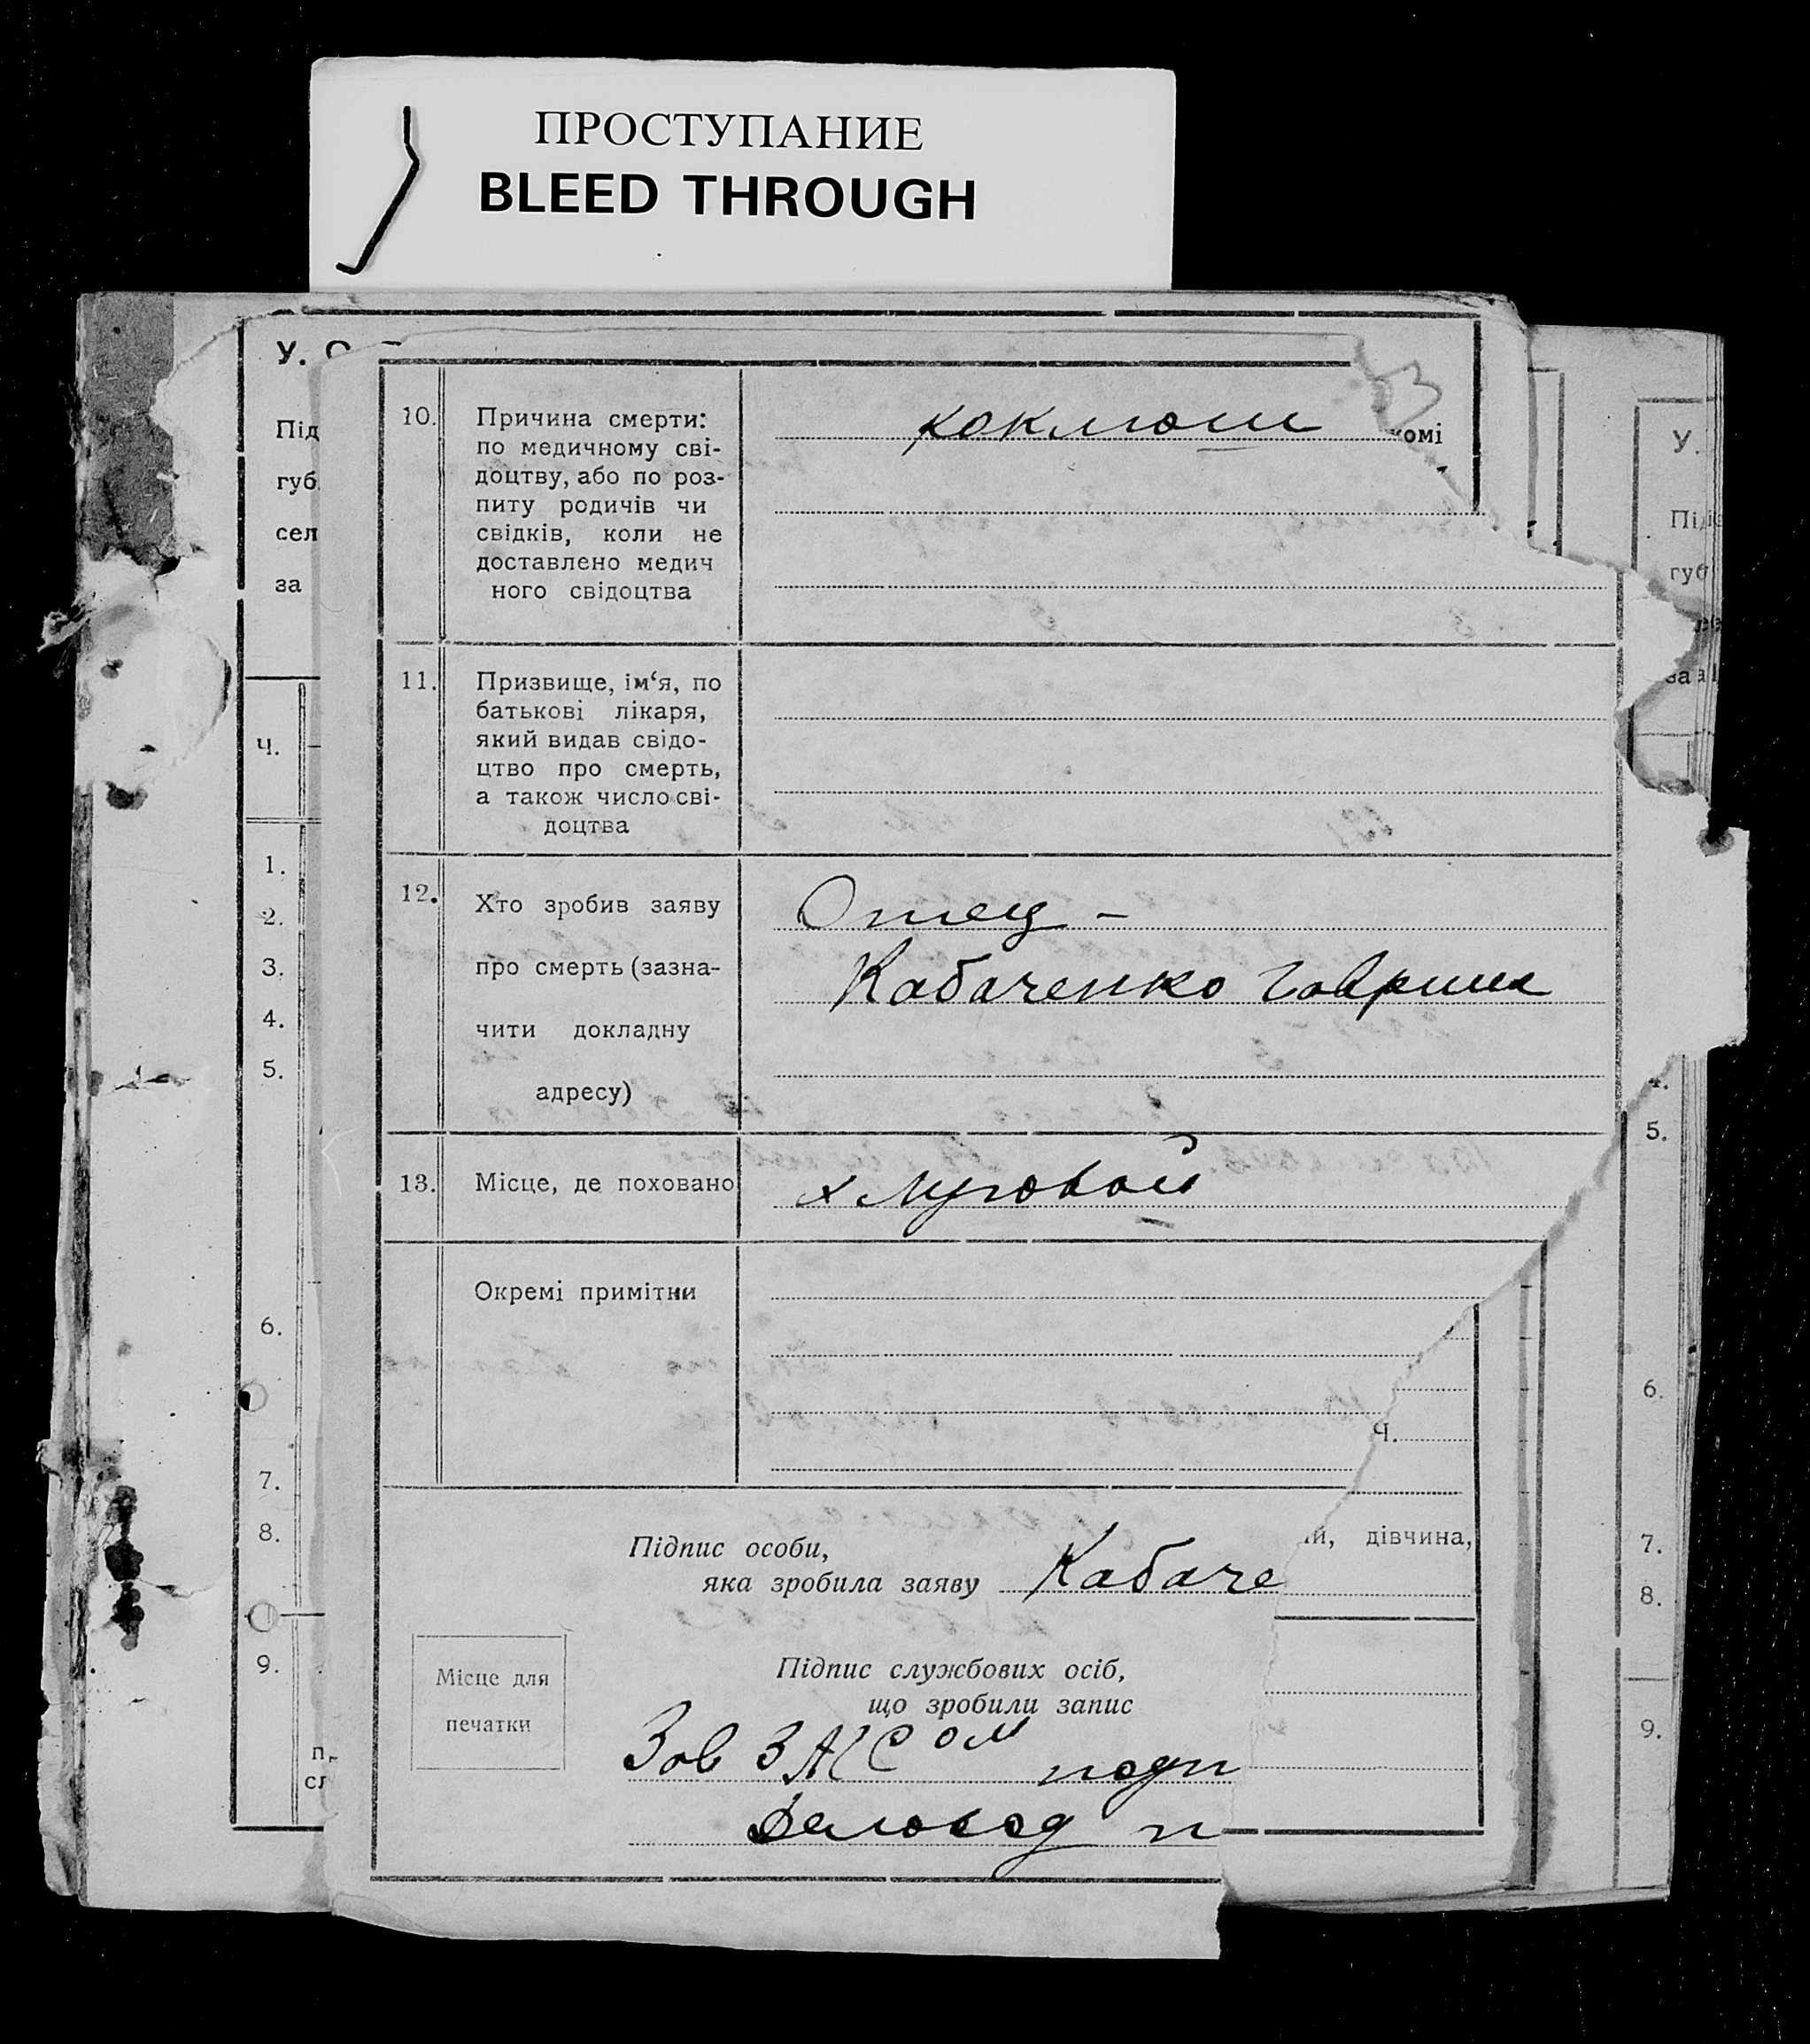 ПРОСТУПАНИЕ
BLEED THROUGH
У.
Під
губ.
сел
за
Ч.
1.
2.
3.
4.
5.
6.
7.
8.
9.
10. Причина смерти: коклюш
по медичному сві-
доцтву, або по роз-
питу родичів чи
свідків, коли не
доставлено медич
ного свідоцтва
комі
11. Призвище, ім‘я, по
батькові лікаря,
який видав свідо-
цтво про смерть,
а також число сві-
доцтва
12. Хто зробив заяву Отец –
про смерть (зазна- Кабаченко Гаврил
чити докладну
адресу)
13. Місце, де поховано х Луговой
Окремі примітки
Ч.
ій, дівчина,
Підпис особи,
яка зробила заяву Кабаче
Місце для
печатки
Підпис службових осіб,
що зробили запис
Зав ЗАГСом подп
Деловод п
У.
Під
губ
за
4.
5.
6.
7.
8.
9.